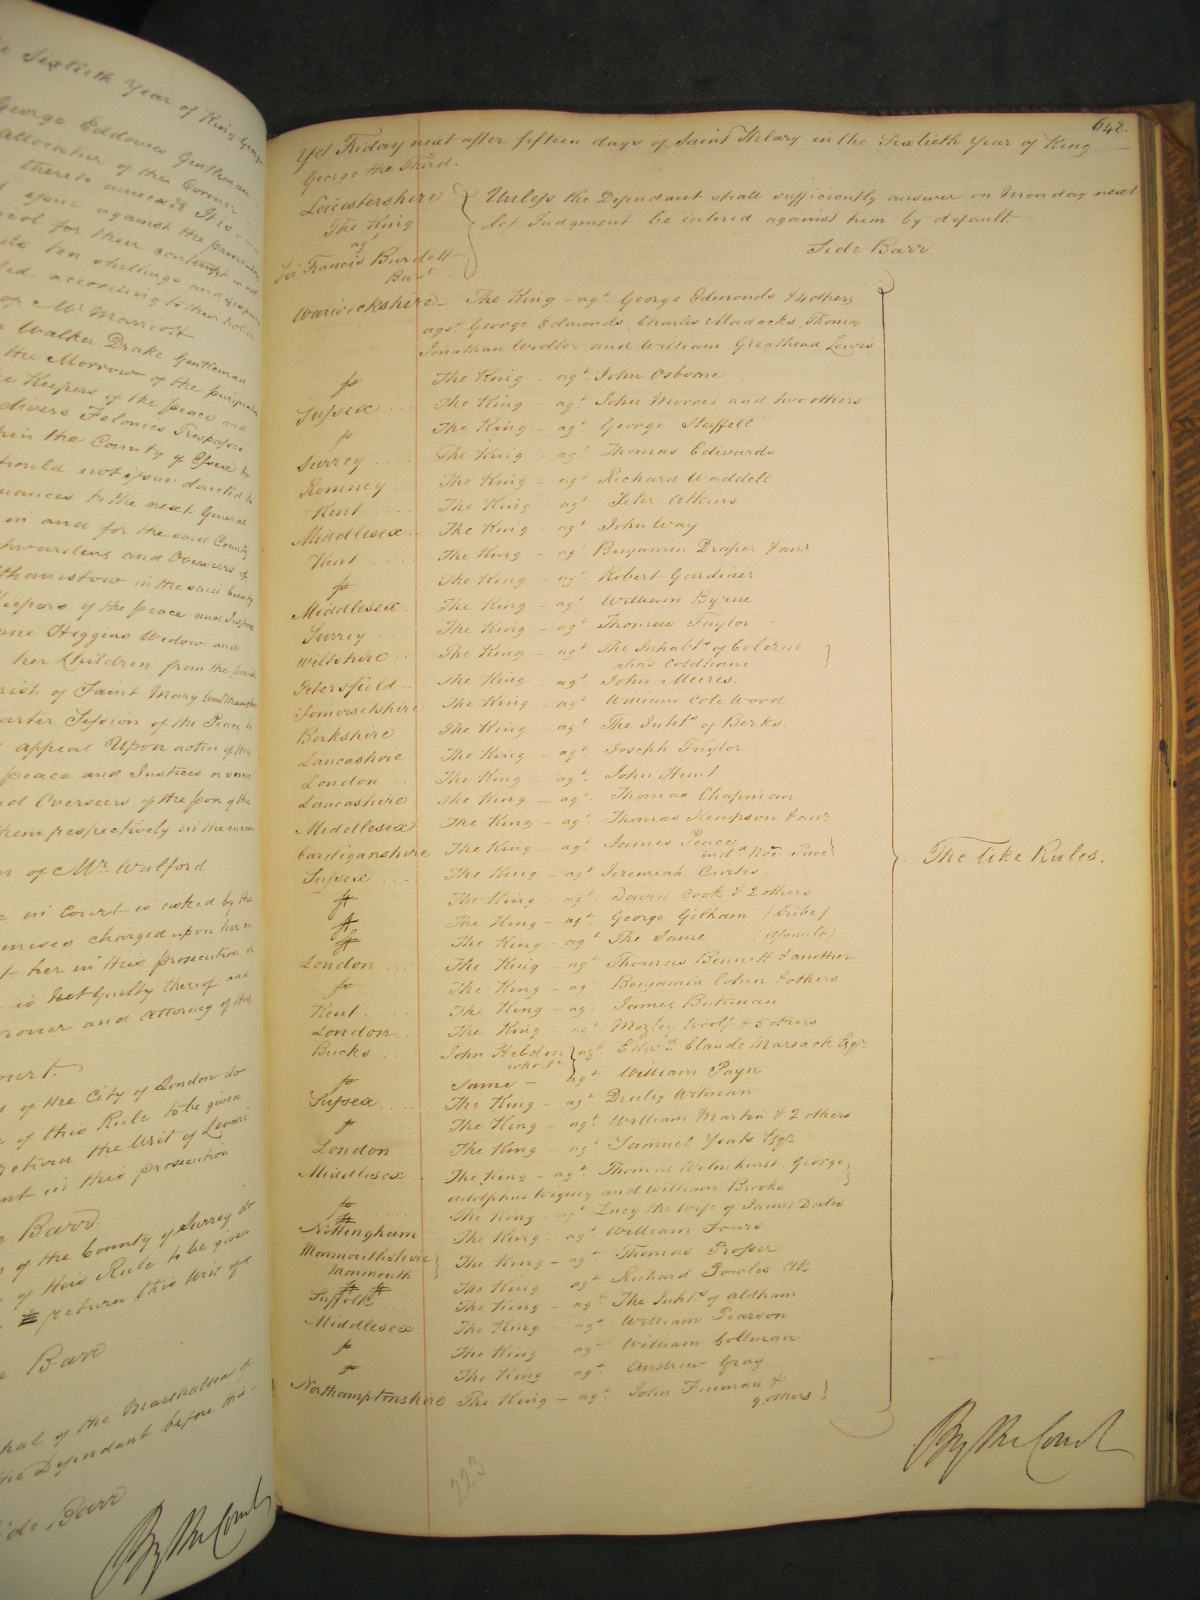 e Sixtieth Year of King George
George Eddowes Gentleman
allocatur of the Coroner
thereto annexed It is
against the prosecutor
for their contempt in not
ten shillings and
according to their
of Mr. Marriott
Walker Drake Gentleman
the Morrow of the purification
Keepers of the peace and
divers Felonies Trespasses
in the County of Essex to
should not issue directed to
to the next General
in and for the said County
Churchwardens and Overseers of
Walthamstow in the said County
Keepers of the peace and Justices
Higgins Widow and
her Children from the parish
rish of Saint Mary Walthamstow
Quarter Session of the Peace
appeal Upon notice of this
peace and Justices or some
nd Overseers of the poor of the
them respectively in the mean
n of Mr. Walford
in Court is asked by the
premises charged upon her in
t her in this prosecution
is Not Guilty thereof and
Coroner and Attorney of this
Court
s of the City of London do
of this Rule to be given
return the Writ of Levari
nt in this prosecution
Barr
s of the County of Surrey do
of this Rule to be given
return this Writ of
Barr
hal of the Marshalsea of
the Defendant before this
ide Barr
By the Court
648.
Yet Friday next after fifteen days of Saint Hilary in the Sixtieth Year of King
George the Third.
Leicestershire Unless the Defendant shall sufficiently answer on Monday next
The King let Judgment be entered against him by default
agt Side Barr.
Sir Francis Burdett
Bart
Warwickshire The King agt. George Edmonds & 4 others
agst. George Edmonds, Charles Madocks, Thomas
Jonathan Wooller and William Greathead Lewis
fr The King agt. John Osborne
Sussex The King agt. John Morris and two others
fr The King agt. George Staffell
Surrey The King agt. Thomas Edwards
Romney The King agt. Richard Waddell
Kent The King agt. Peter Atkins
Middlesex The King agt. John Way
Kent The King agt. Benjamin Draper & anr
fr The King agt. Robert Gardiner
Middlesex The King agt. William Byrne
Surrey The King agt. Thomas Taylor
Wiltshire The King agt. The Inhabts. of Colerne
alias Coldhane
Petersfield The King agt. John Meeres.
Somersetshire The King agt. William Cole Wood
Berkshire The King agt. The Inhts. of Berks
Lancashire The King agt. Joseph Taylor
London The King agt. John Hunt
Lancashire The King agt. Thomas Chapman
Middlesex The King agt. Thomas Kempson & anr
Cardiganshire The King agt. James Peace
Sussex The King agt. Jeremiah Curtis
fr The King agt. David Cook & 2 others
fr The King agt. George Gilham (Bribe)
fr The King agt. The Same (Assault)
London The King agt. Thomas Bennett & another
fr The King agt. Benjamin Cohen & others
Kent The King agt. James Bateman
London The King agt. Mozley Woolf & 5 others
Bucks John Hebden agt. Edwd. Claude Marsack Esqr.
who &c
fr Same agt. William Payn
Sussex The King agt. Druley Wilman
fr The King agt. William Martin & 2 others
London The King agt. Samuel Yeats Esqr.
Middlesex The King agt. Thomas Wilmhurst George
Adolphus Wigney and William Brooke
fr The King agt. Lucy the Wife of James Dales
Nottingham The King agt. William Soars
Monmouthshire The King agt. Thomas Prosser
Monmouth The King agt. Richard Powles
Suffolk The King agt. The Inhts. of Aldham
Middlesex The King agt. William Pearson
fr The King agt. William Collman
fr The King agt. Andrew Gray
Northamptonshire The King agt. John Freeman &
9 others
The like Rules.
By the Court
223